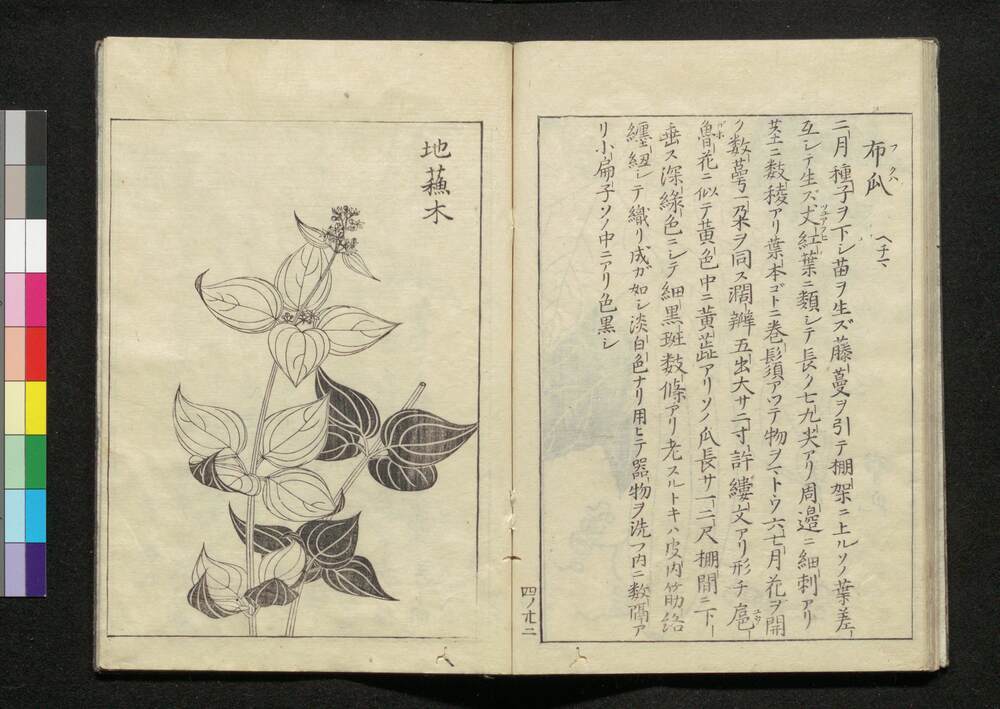 布瓜 フクハ ヘチマ
二月種子ヲ下シ苗ヲ生ズ藤蔓ヲ引テ棚架ニ上ルソノ葉差ー
互シテ生ズ丈紅葉ニ類シテ長ク七九尖アリ周邉ニ細刺アリ
莖ニ数稜アリ葉本ゴトニ巻髭須アツテ物ヲマトウ六七月花ヲ開
ク数蕚一朶ヲ同ス濶瓣五出大サ二寸許縷文アリ形チ
花ニ似テ黄色中ニ黄蕋アリソノ瓜長サ一二尺棚間ニ下ー
垂ス深緑色ニシテ細黒斑数條アリ老スルトキハ皮内筋絡
纏紐シテ織リ成ガ如シ淡白色ナリ用ヒテ器物ヲ洗フ内ニ数隔ア
リ小扁子ソノ中ニアリ色黒シ
四ノ廿二
地蘓木